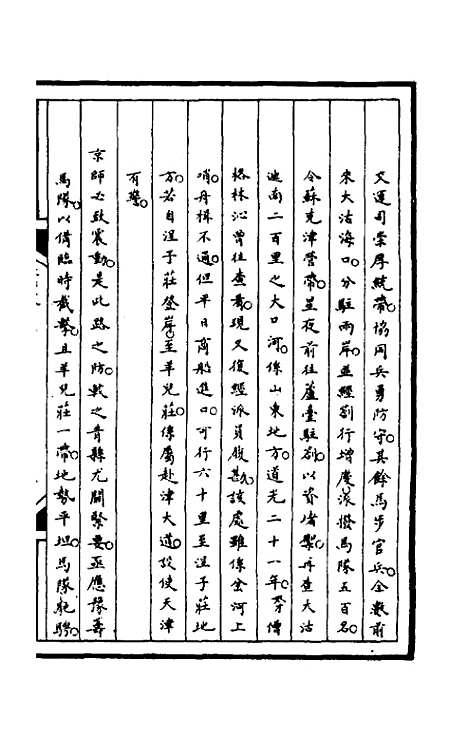 交運司崇厚統帶協同兵勇防守其餘馬步官兵全數前
來大沽海口分駐兩岸並經劄行增慶派撥馬隊五百名
令蘇克津營帶星夜前往蘆臺駐劄以資堵禦再查大沽
迤南二百里之大口河係山東地方道光二十一年曾僧
格林沁曾往查看現又復經派員履勘該處雖係岔河上
哨舟楫不通但平日商船進口可行六十里至湼子莊地
方若自湼子莊登岸至羊兒莊係屬赴津大道設使天津
有警
京師必致震動是此路之防較之青縣尤關緊要亟應豫籌
馬隊以備臨時截擊且羊兒莊一帶地勢平坦馬隊馳騁